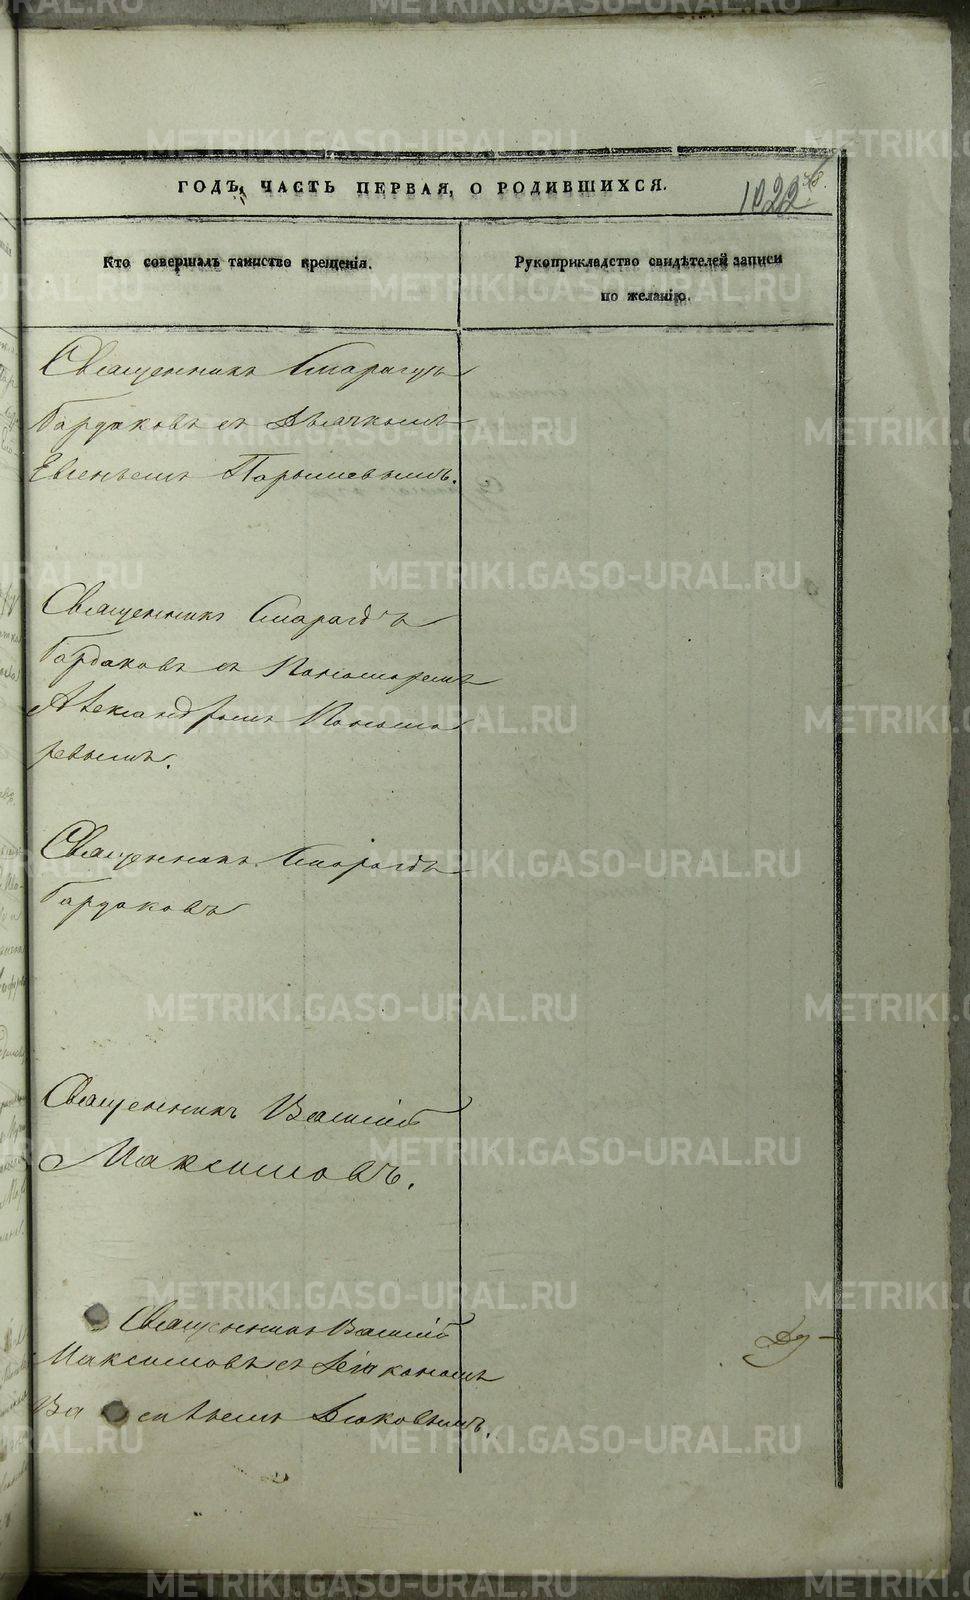 ГОДЪ, ЧАСТЬ ПЕРВАЯ, О РОДИВШИХСЯ.
1022
Кто совершалъ таинство крещенія.
Рукоприкладство свидѣтелей записи
по желанію.
Священникъ Смарагдъ
Бардаковъ съ Дьячкомъ
Евгеньемъ Парышевымъ.
Священникъ Смарагдъ
Бардаковъ съ Пономаремъ
Александромъ Понома
ревымъ.
Священникъ Смарагдъ
Бардаковъ
Священникъ Василій
Максимовъ.
Священникъ Василій
Максимовъ съ Діакономъ
METRIKI.GASO-URAL.RU